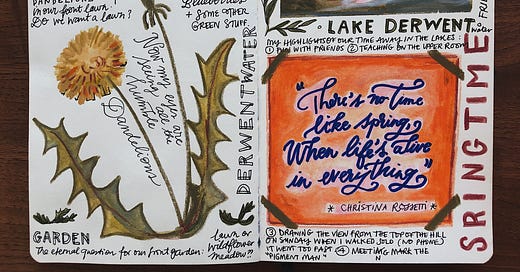 in our front lawn
Do we want a lawn?
Bluebonnets
+ Some other
GREEN STUFF.
Now my eyes are
seeing
all the
humble
Dandelions
DERWENTWATER
GARDEN
The eternal question for our front garden:
Lawn or
Wildflower
Meadow??
LAKE DERWENT
water
MY HIGHLIGHTS OF OUR TIME AWAY IN THE LAKES:
① FUN WITH FRIENDS ② TEACHING ON THE UPPER ROOM
"There's no time
like spring,
When life's alive
in everything"
* CHRISTINA ROSSETTI *
SRINGTIME
③ DRAWING THE VIEW FROM THE TOP OF THE HILL
ON SUNDAY WHEN I WALKED SOLO (NO PHONE)
IT WENT TOO FAST ④ MEETING MARK THE
"PIGMENT MAN"